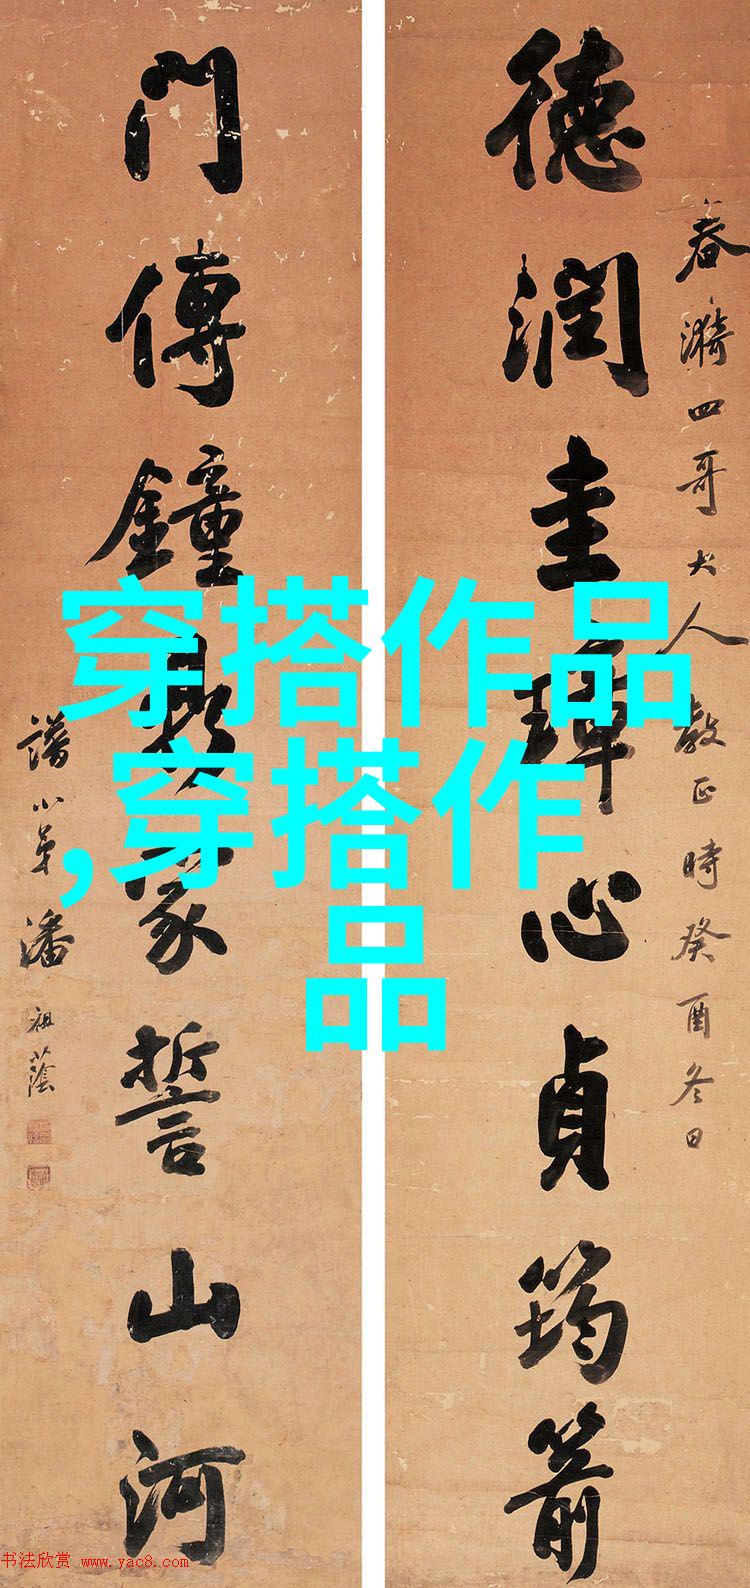 春漪四哥大人教正時癸酉冬日
德潤圭璋心貞筠箭
門傳鐘鼎家誓山河
譜小弟潘祖蔭
穿搭作品
,穿搭作
品
书法欣赏 www.yac8.com